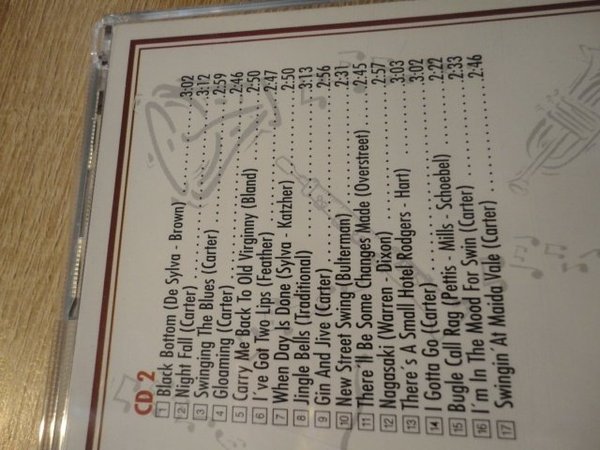 CD 2
1 Black Bottom (De Sylva - Brown) 3:02
2 Night Fall (Carter) 3:12
3 Swinging The Blues (Carter) 2:59
4 Gloaming (Carter) 2:46
5 Carry Me Back To Old Virginny (Bland) 2:50
6 I´ve Got Two Lips (Feather) 2:47
7 When Day Is Done (Sylva - Katzher) 2:50
8 Jingle Bells (Traditional) 3:13
9 Gin And Jive (Carter) 2:56
10 New Street Swing (Bulterman) 2:31
11 There´ll Be Some Changes Made (Overstreet) 2:45
12 Nagasaki (Warren - Dixon) 2:57
13 There´s A Small Hotel Rodgers - Hart) 3:03
14 I Gotta Go (Carter) 3:02
15 Bugle Call Rag (Pettis - Mills - Schoebel) 2:22
16 I´m In The Mood For Swin (Carter) 2:33
17 Swingin´ At Maida Vale (Carter) 2:46